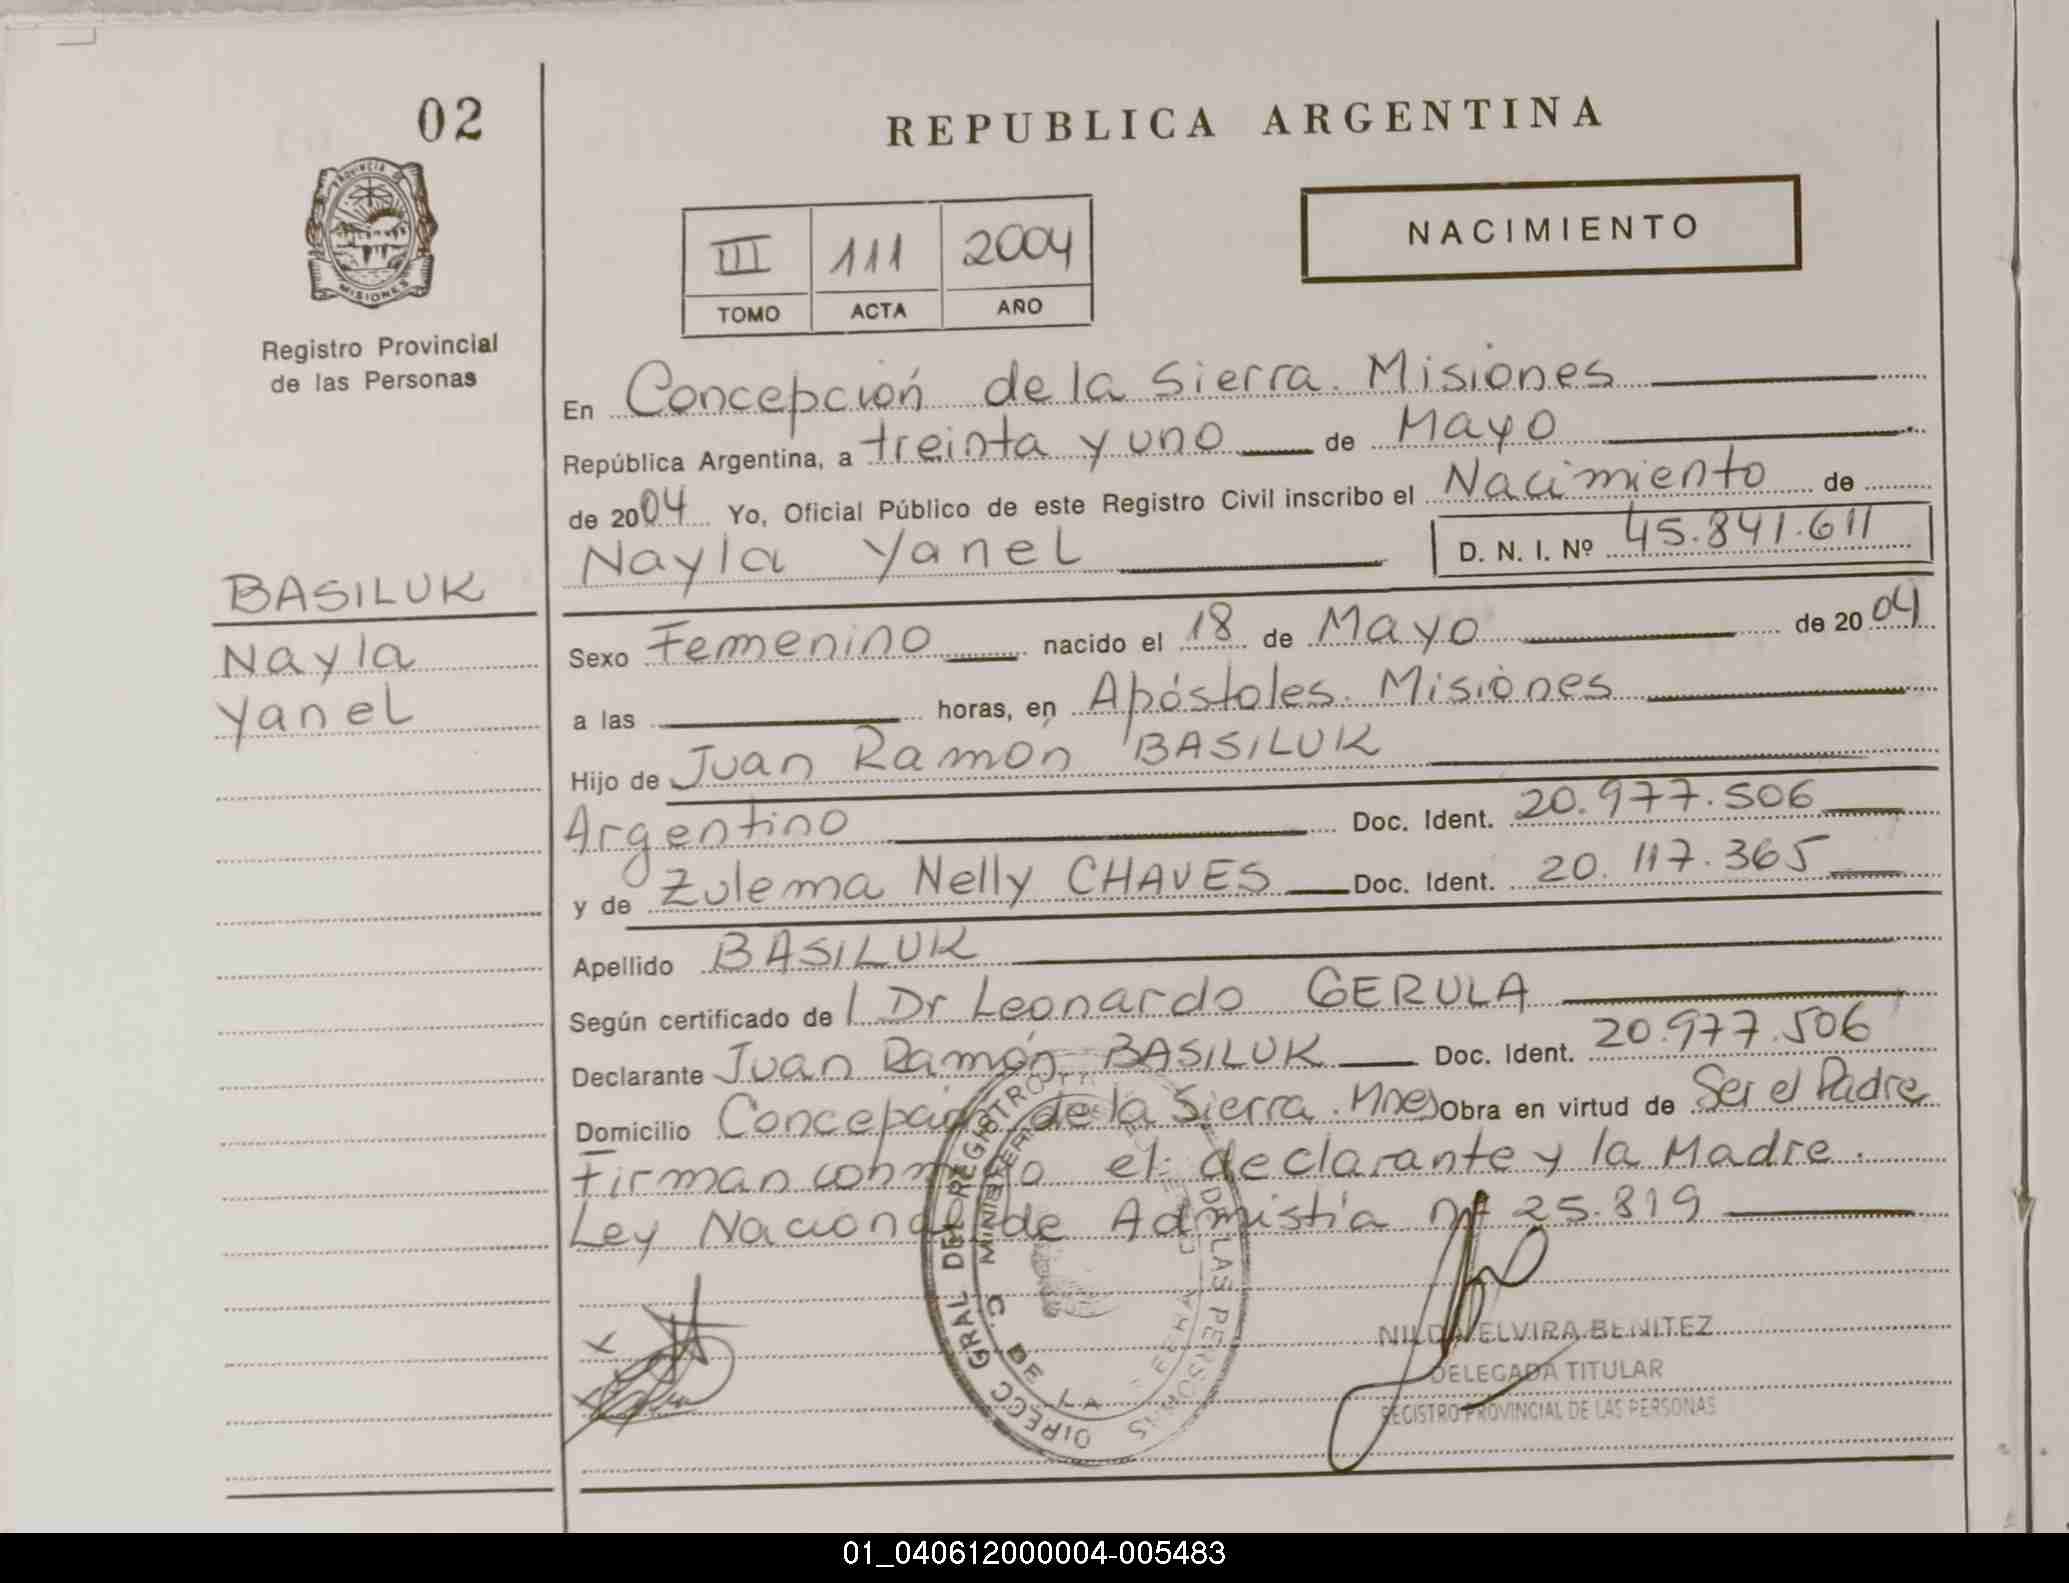 02
PROVINCIA DE
MISIONES
Registro Provincial
de las Personas
BASILUK
Nayla
Yanel
REPUBLICA ARGENTINA
III 111 2004
TOMO ACTA AÑO
NACIMIENTO
En Concepción de la Sierra. Misiones
República Argentina, a treinta y uno de Mayo
de 2004 Yo, Oficial Público de este Registro Civil inscribo el Nacimiento de
Nayla Yanel D. N. I. Nº 45.841.611
Sexo Femenino nacido el 18 de Mayo de 2004
a las horas, en Apóstoles. Misiones
Hijo de Juan Ramón BASILUK
Argentino Doc. Ident. 20.977.506
y de Zulema Nelly CHAVES Doc. Ident. 20.117.365
Apellido BASILUK
Según certificado de l Dr Leonardo GERULA
Declarante Juan Ramón BASILUK Doc. Ident. 20.977.506
Domicilio Concepción de la Sierra. Mnes Obra en virtud de Ser el Padre
Firman conmigo el declarante y la Madre.
Ley Nacional de Admistía nº 25.819
DIRECC GRAL DEL REGISTRO DE LAS PERSONAS
C. DE LA
NILDA ELVIRA BENITEZ
DELEGADA TITULAR
REGISTRO PROVINCIAL DE LAS PERSONAS
01_040612000004-005483